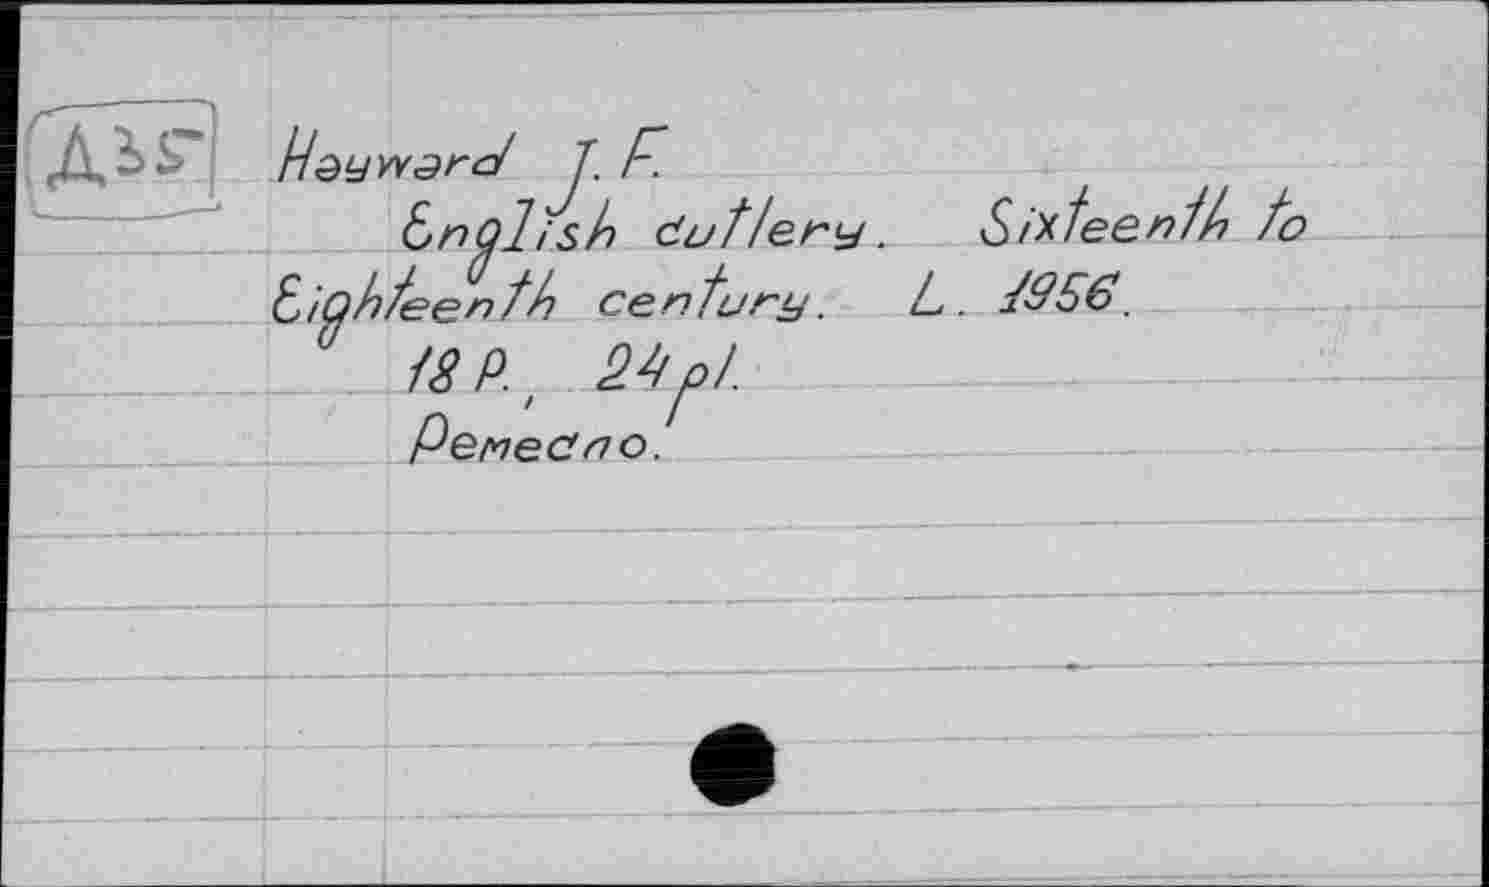 Hayward J. F.
English cutlery. Sixteenth to
Eighteenth century. L. 1956.
18 P., 24 pl.
Ремесло.